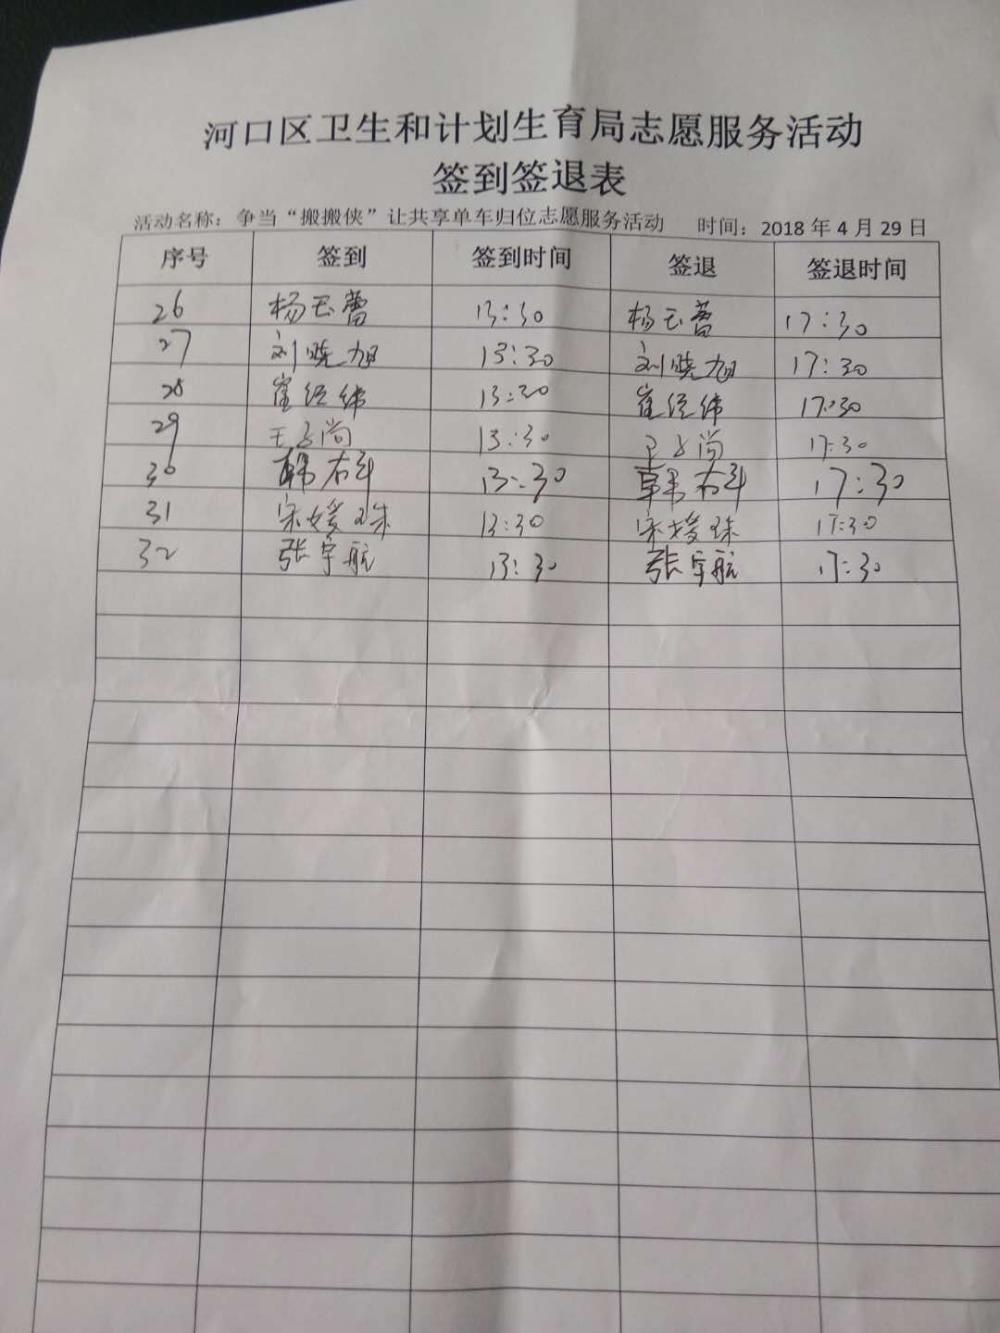 河口区卫生和计划生育局志愿服务活动
签到签退表
活动名称：争当“搬搬侠”让共享单车归位志愿服务活动 时间：2018年4月29日
序号 签到 签到时间 签退 签退时间
26 杨玉蕾 13:30 杨玉蕾 17:30
27 刘晓旭 13:30 刘晓旭 17:30
28 崔经纬 13:30 崔经纬 17:30
29 13:30 17:30
30 13:30 17:30
31 宋媛珠 13:30 宋媛珠 17:30
32 张宇航 13:30 张宇航 17:30